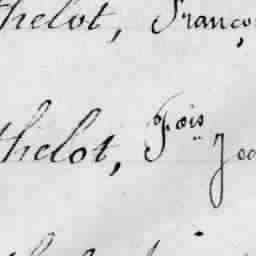 thelot, Franço
thelot, Fois Jea